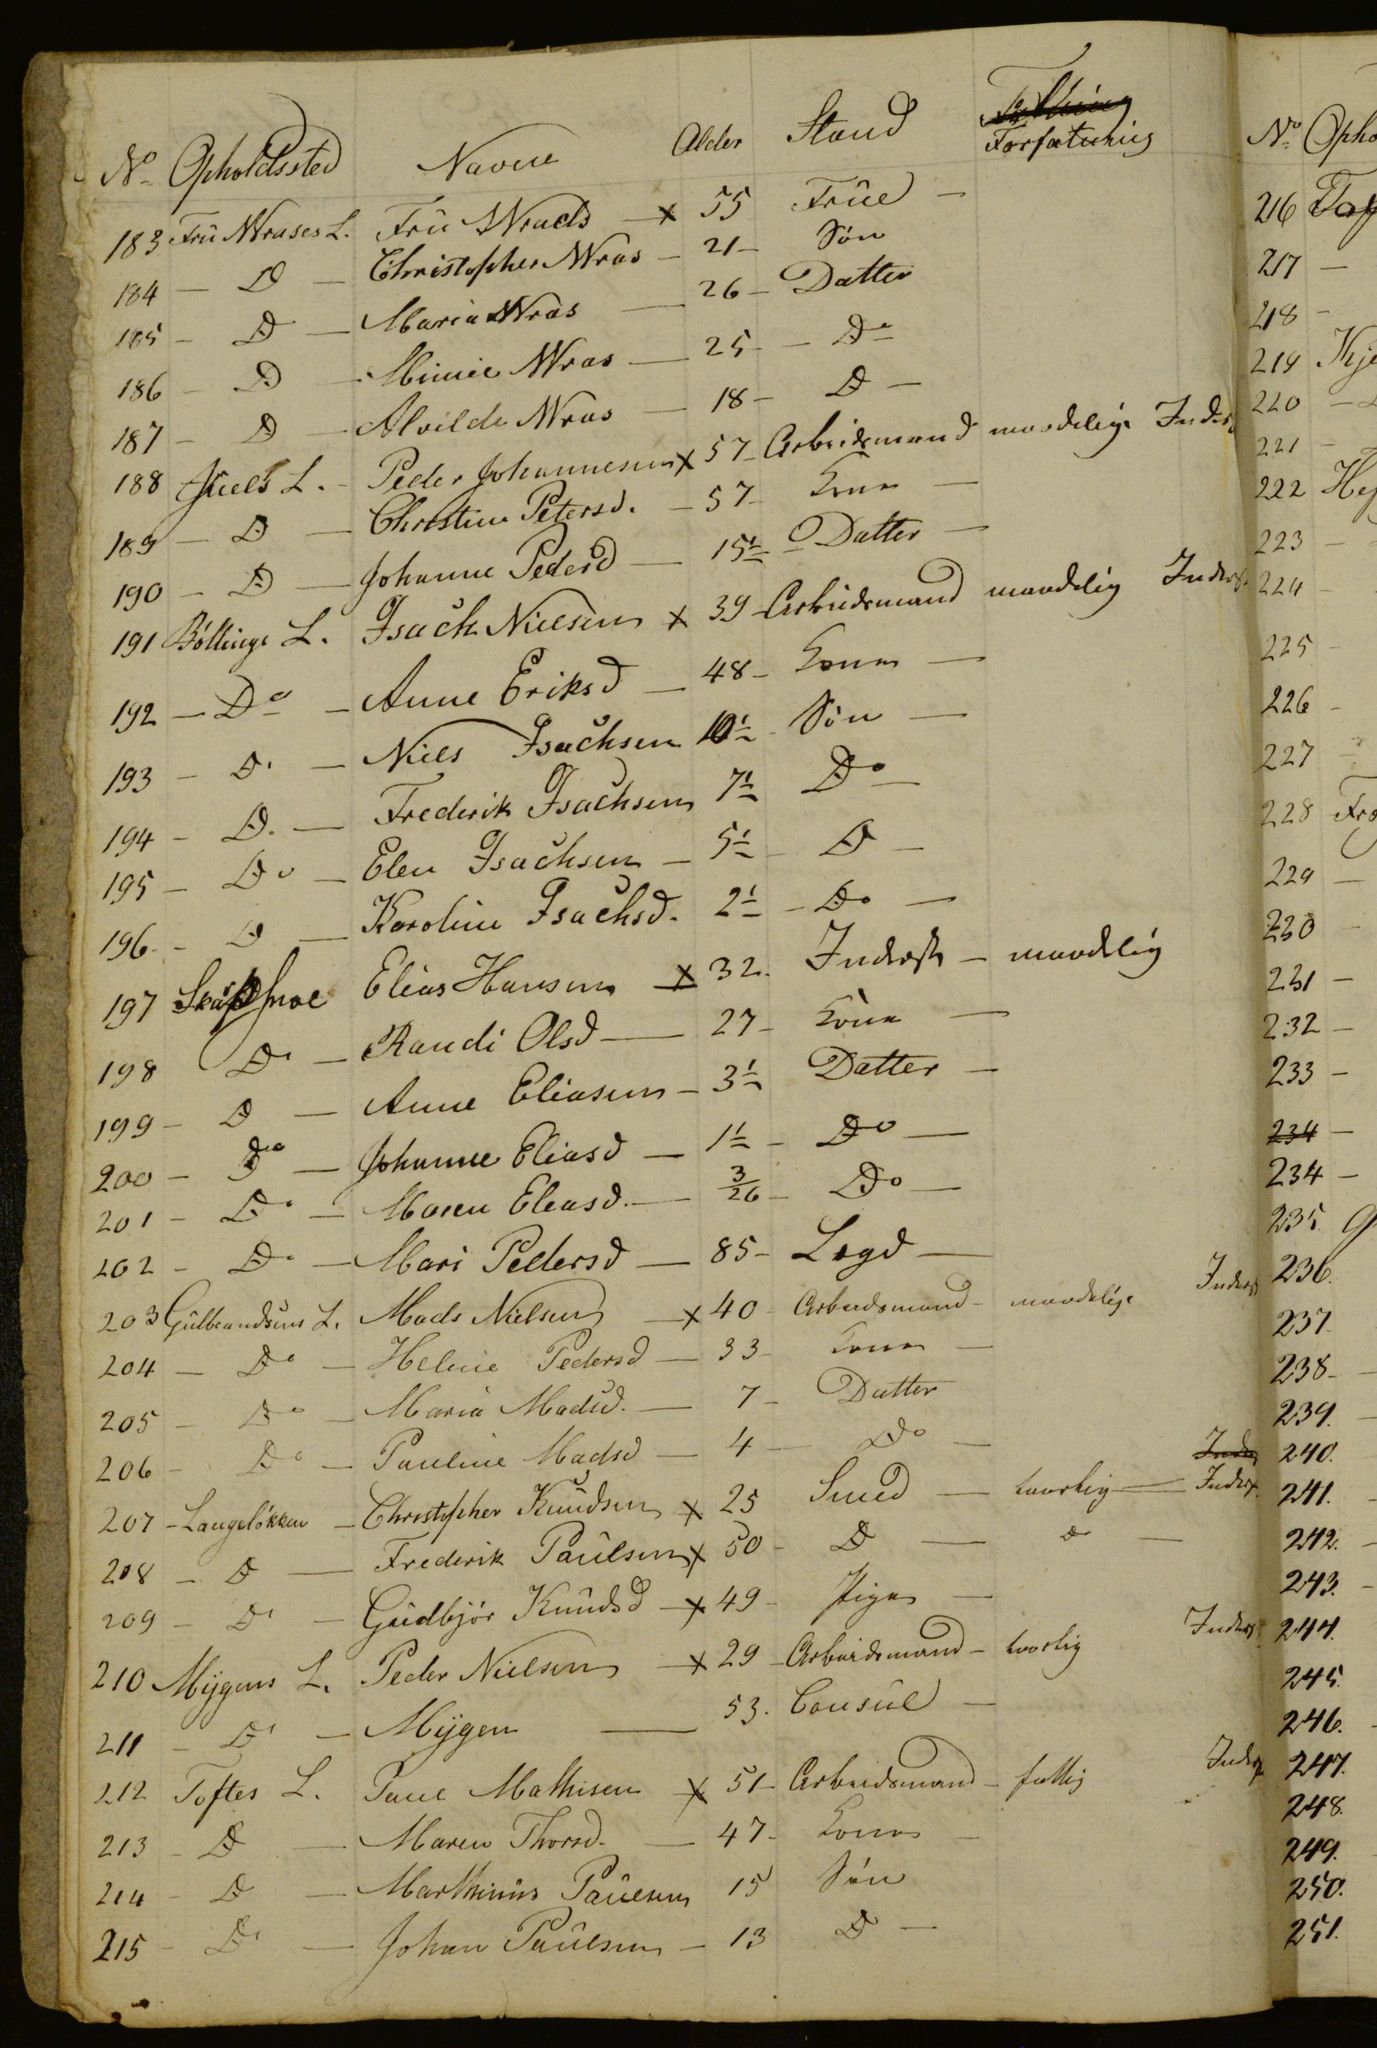 No Opholdssted Navne Alder Stand Forfatning
183 Frü Wrases L. Frü Wraels x 55 Früe —
184 — D — Christopher Wras — 21 — Søn
185 — D — Maria Wras — 26 — Datter
186 — D — Mimie Wras — 25 — Do
187 — D — Alvilde Wras — 18 — D —
188 Juels L. — Peder Johannesen x 57 — Arbeidsmand maadelig Inderst
189 — D — Christine Petersd. — 57 — Kone —
190 — D — Johanne Pedersd — 15 1/2 — Datter —
191 Böttings L. Isach Nielsen x 39 — Arbeidsmand maadelig Inderst
192 — Do — Anne Eriksd — 48 — Kone —
193 — D. — Niels Isachsen 10 1/2 — Søn —
194 — D. — Frederik Isachsen 7 1/2 Do —
195 — Do — Elen Isachsen — 5 1/2 — D —
196 — D — Karoline Isachsd. 2 1/2 — Do —
197 Elias Hansen x 32. Inderst — maadelig
198 Do — Randi Olsd — 27 — Kone —
199 — D — Anne Eliasen — 3 1/2 Datter —
200 — Do — Johanne Eliasd — 1 1/2 — Do —
201 — Do — Maren Eleasd. — 3/26 — Do —
202 — Do — Mari Pedersd — 85 — Legd —
203 Gülbrandsens L. Mads Nielsen x 40 — Arbeidsmand — maadelig Inderst
204 — Do — Helene Pedersd — 33 — Kone —
205 — Do — Maria Madsd. — 7 — Datter
206 — Do — Pauline Madsd — 4 — Do —
207 — Langeløkken — Christopher Knüdsen x 25 Smed — taarlig — Inderst
208 — D — Frederik Paülsen x 50 — D — D —
209 — D. — Güdbjör Knüdsd — x 49 — Pige —
210 Mygens L. Peder Nielsen — x 29 — Arbeidsmand — taarlig Inderst
211 — D. — Mygen — 53. Consül —
212 Toftes L. Paul Mathisen x 51 — Arbeidsmand — fattig Inderst
213 — D — Maren Thorsd. — 47 — Kone —
214 — D — Marthinüs Paülsen 15 Søn
215 — D. — Johan Paülsen — 13 D —
No Opho
216
217 —
218 —
219 Kje
220 —
221 —
222
223 —
224 —
225 —
226 —
227 —
228
229 —
230 —
231 —
232 —
233 —
234 —
234 —
235.
236.
237.
238 —
239. —
240.
241.
242. —
243. —
244.
245.
246. —
247.
248.
249.
250.
251.